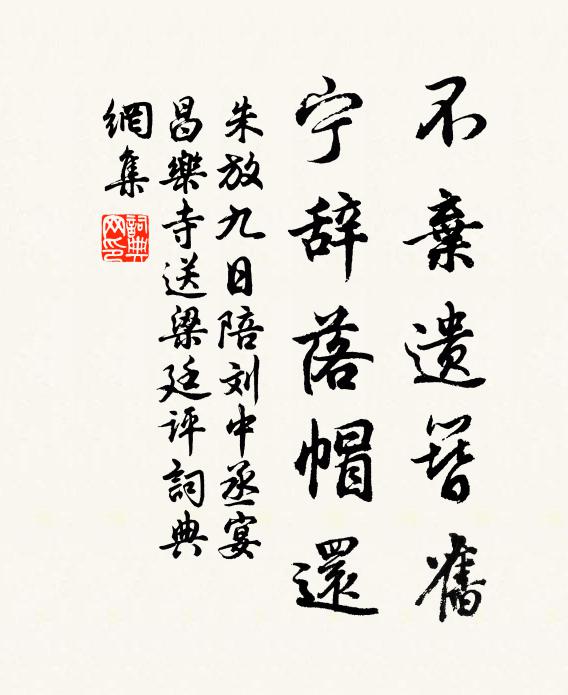 不棄遺簪舊
宁辞落帽還
朱放九日陪刘中丞宴
昌樂寺送梁廷评詞典
網集
詞典網印